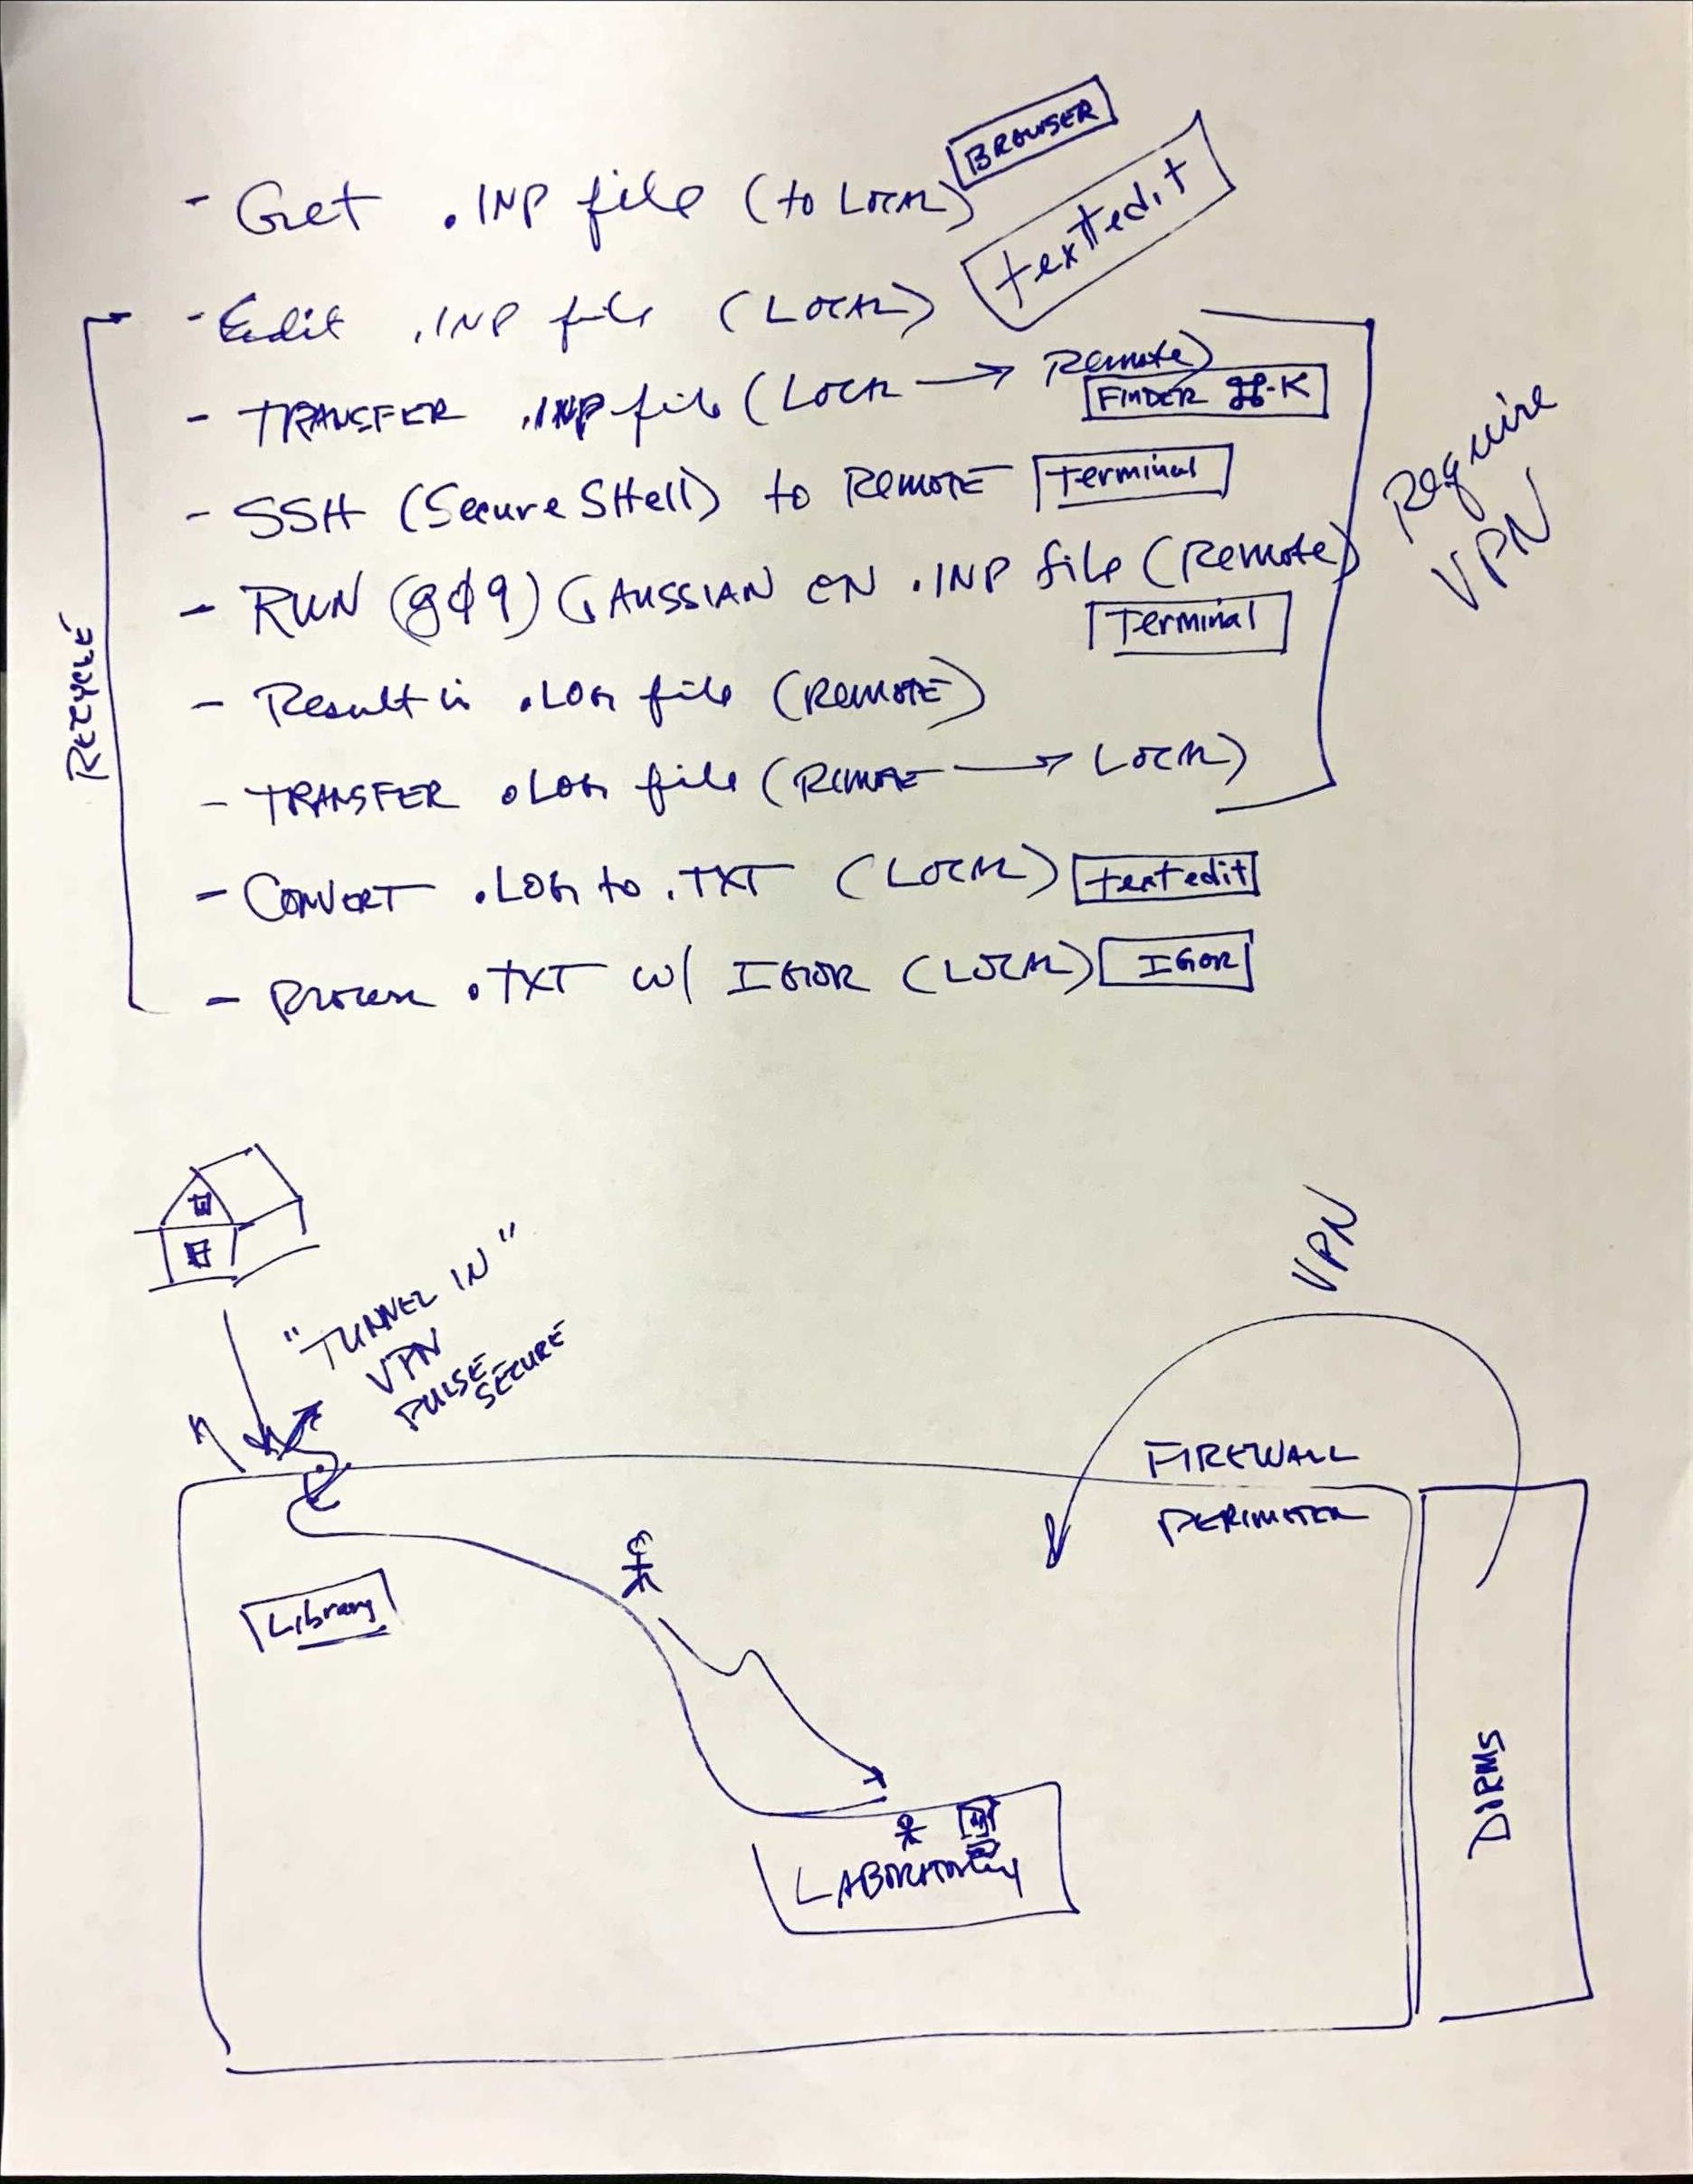 BROWSER
- Get .INP file (to LOCAL)
textedit
- Edit .INP file (LOCAL)
- TRANSFER .INP file (LOCAL → Remote)
FINDER ⌘-K
- SSH (Secure SHell) to REMOTE Terminal
- RUN (gφ9) GAUSSIAN ON .INP file (Remote)
Terminal
- Result is .LOG file (REMOTE)
- TRANSFER .LOG file (REMOTE → LOCAL)
- CONVERT .LOG to .TXT (LOCAL) textedit
- Process .TXT w/ IGOR (LOCAL) IGOR
RECYCLE
Require
VPN
"TUNNEL IN"
VPN
PULSE
SECURE
VPN
FIREWALL
PERIMETER
Library
LABORATORY
DORMS